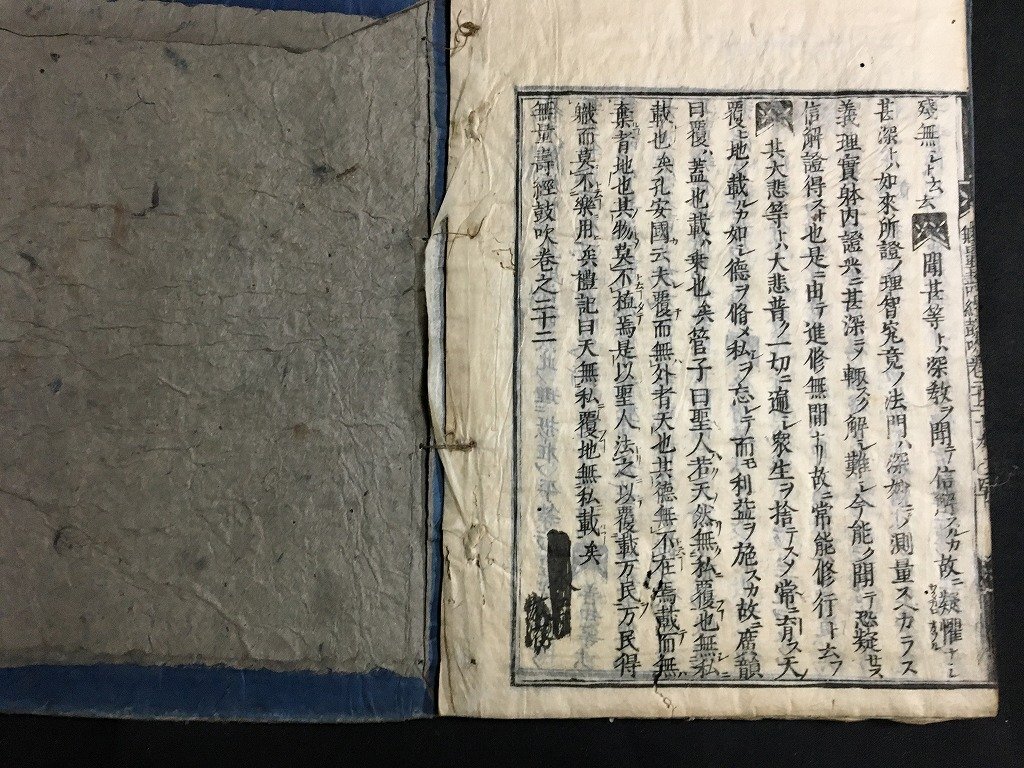 殘無シト云云 聞甚等トハ深教ヲ聞テ信解スルカ故ニ疑懼ナシ
甚深トハ如來所證ノ理智究竟ノ法門ハ深妙ニノ測量スヘカラス
義理實躰内證共ニ甚深ニノ輙スク解シ難シ今能ク聞テ恐疑セス
信解證得スル也是ニ由テ進修無間ナリ故ニ常能修行ト云フ
其大悲等トハ大悲普ク一切ニ遍シ衆生ヲ捨テスノ常ニ育ス天
覆ヒ地ノ載ルカ如シ德ヲ脩メ私ヲ忘レテ而モ利益ヲ施スカ故ニ廣韻
曰覆ハ蓋也載ハ乗也矣管子曰聖人若天然無私覆也無私
載也矣孔安國云夫覆而無外者天也其德無不在焉載而無
棄者地也其物莫不植焉是以聖人法之以覆載万民万民得
職而莫不樂用矣禮記曰天無私覆地無私載矣
無量壽經鼓吹卷之二十二